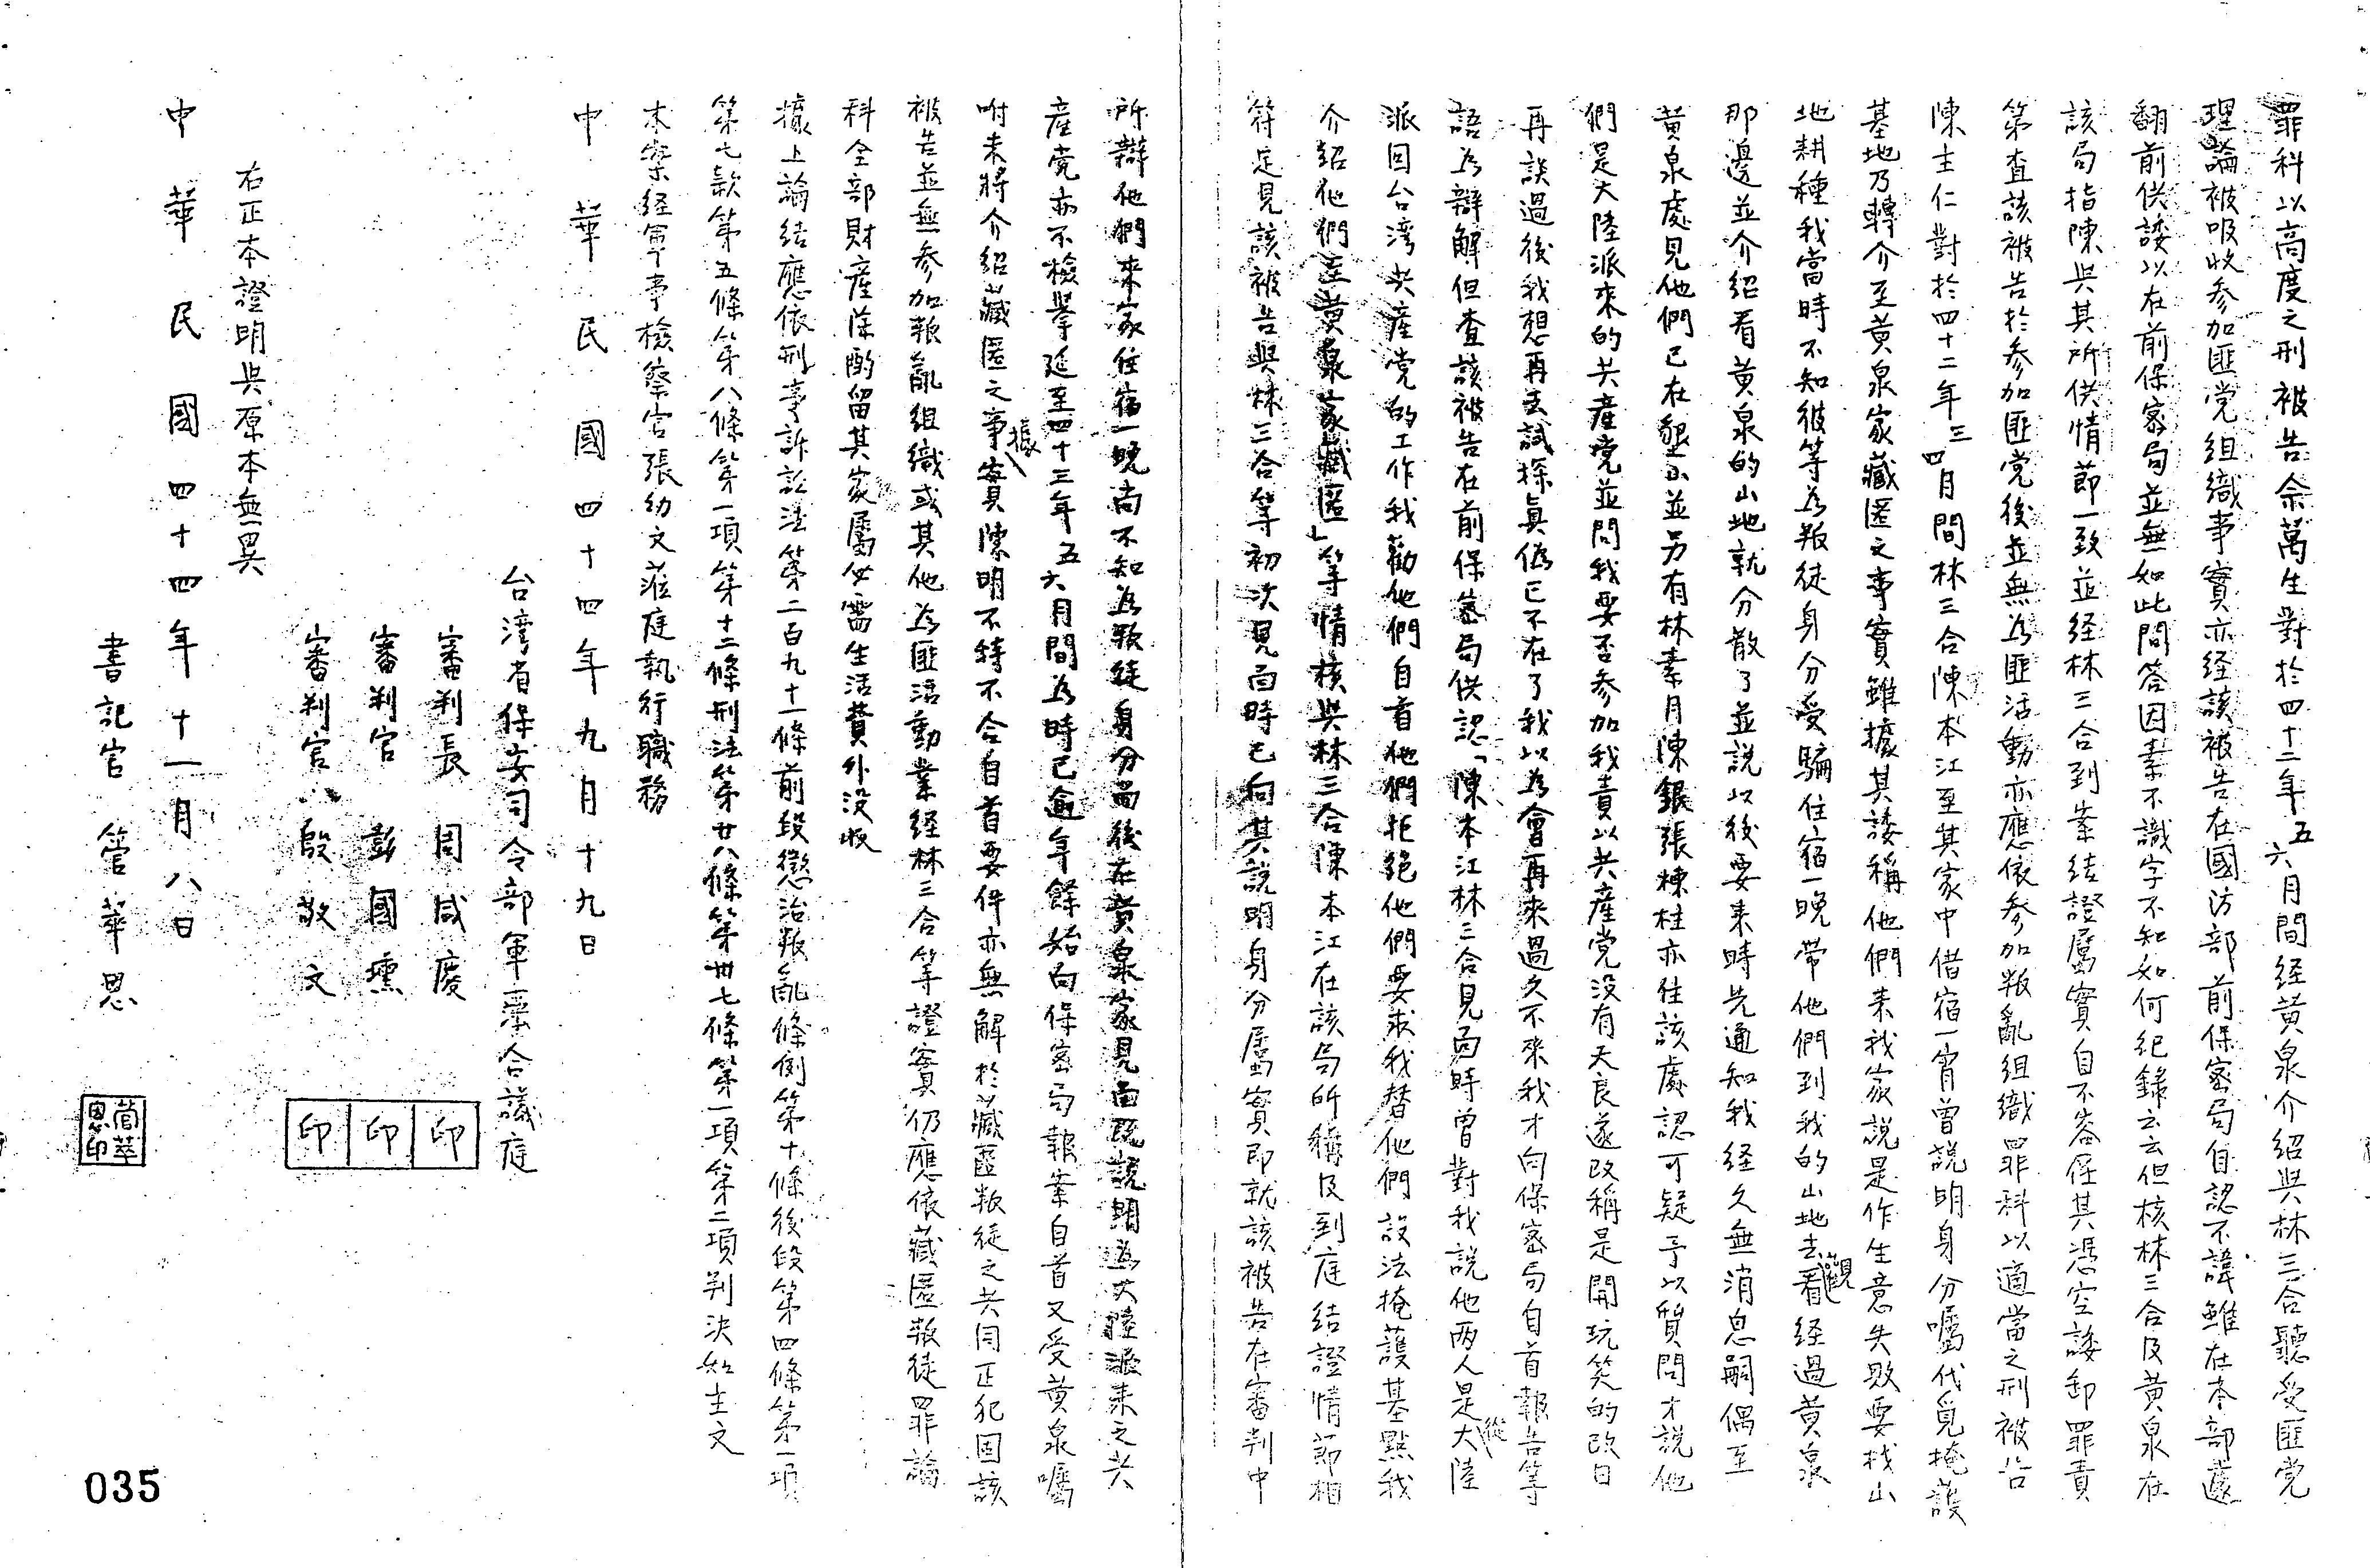 罪科以高度之刑被告余萬生對於四十二年五六月間経黄泉介紹與林三合聽受匪党
理論被吸收参加匪党组織事實亦经該被告在國防部前保密局自認不諱雖在本部遽
翻前供諉以在前保密局並無如此問答因素不識字不知如何纪錄云云但核林三合及黄泉在
該局指陳與其所供情節一致並经林三合到案结證屬實自不容任其憑空諉卸罪責
第查該被告於参加匪党後並無為匪活動亦應依参加叛亂组織罪科以適當之刑被告
陳主仁對於四十二年三四月間林三合陳本江至其家中借宿一宵曾説明身分囑代覓掩護
基地乃轉介至黄泉家藏匿之事實雖據其諉稱他們来我家説是作生意失败要找山
地耕種我當時不知彼等為叛徒身分受騙住宿一晚带他們到我的山地去觀看経過黄泉
那邊並介紹看黄泉的山地就分散了並説以後要来時先通知我经久無消息嗣偶至
黄泉處見他們已在墾山並另有林素月陳銀張棟柱亦住該處認可疑予以質問才説他
們是大陸派來的共產党並問我要否参加我責以共產党没有天良遂改稱是開玩笑的改日
再談過後我想再去試探真偽已不在了我以為會再來過久不來我才向保密局自首報告等
語為辯解但查該被告在前保密局供認「陳本江林三合見面時曾對我説他两人是從大陸
派回台湾共產党的工作我勸他們自首他們拒絕他們要求我替他們設法掩護基點我
介紹他們至黄泉家藏匿」等情核與林三合陳本江在該局所稱及到庭结證情節相
符足見該被告與林三合等初次見面時已向其説明身分屬實即就該被告在審判中
所辯他們來家住宿一晚尚不知為叛徒身分而後在黄泉家見面既説明為大陸派来之共
產党亦不檢舉延至四十三年五六月間為時已逾年餘始向保密局報案自首又受黄泉囑
咐未將介紹藏匿之事據實陳明不特不合自首要件亦無解於藏匿叛徒之共同正犯因該
被告並無参加叛亂组織或其他為匪活動業经林三合等證實仍應依藏匿叛徒罪論
科全部財產除酌留其家屬必需生活費外没收
據上論结應依刑事訴訟法第二百九十一條前段懲治叛亂條例第十條後段第四條第一項
第七款第五條第八條第一項第十二條刑法第廿八條第卅七條第一項第二項判决如主文
本案经軍事檢察官張幼文蒞庭執行職務
中華民國四十四年九月十九日
台湾省保安司令部軍事合議庭
審判長 周咸慶
審判官 彭國壎
審判官 殷敬文
印
印
印
右正本證明與原本無異
中華民國四十四年十一月八日
書記官 管華恩
035